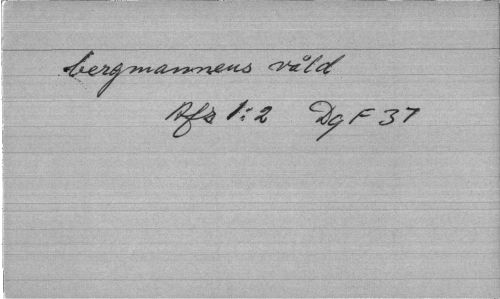 bergmannens våld
Afz 1:2 DgF 37